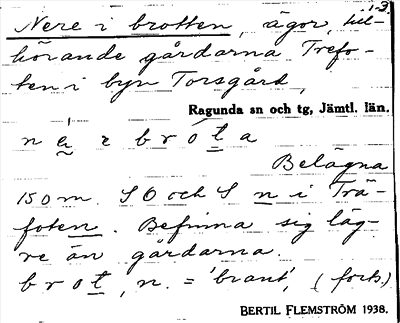 1-3
Nere i brotten, ägor, till-
hörande gårdarna Trefo-
ten i byn Torsgård,
Ragunda sn och tg, Jämtl. län.
n e r e b r o t a
Belägna
150 m. SO och S n i Trä-
foten. Befinna sig läg-
re än gårdarna.
brot, n. = 'brant', (forts.)
BERTIL FLEMSTRÖM 1938.